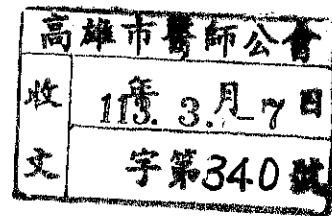 高雄市醫師公會
收文
113年3.月-7日
字第340號